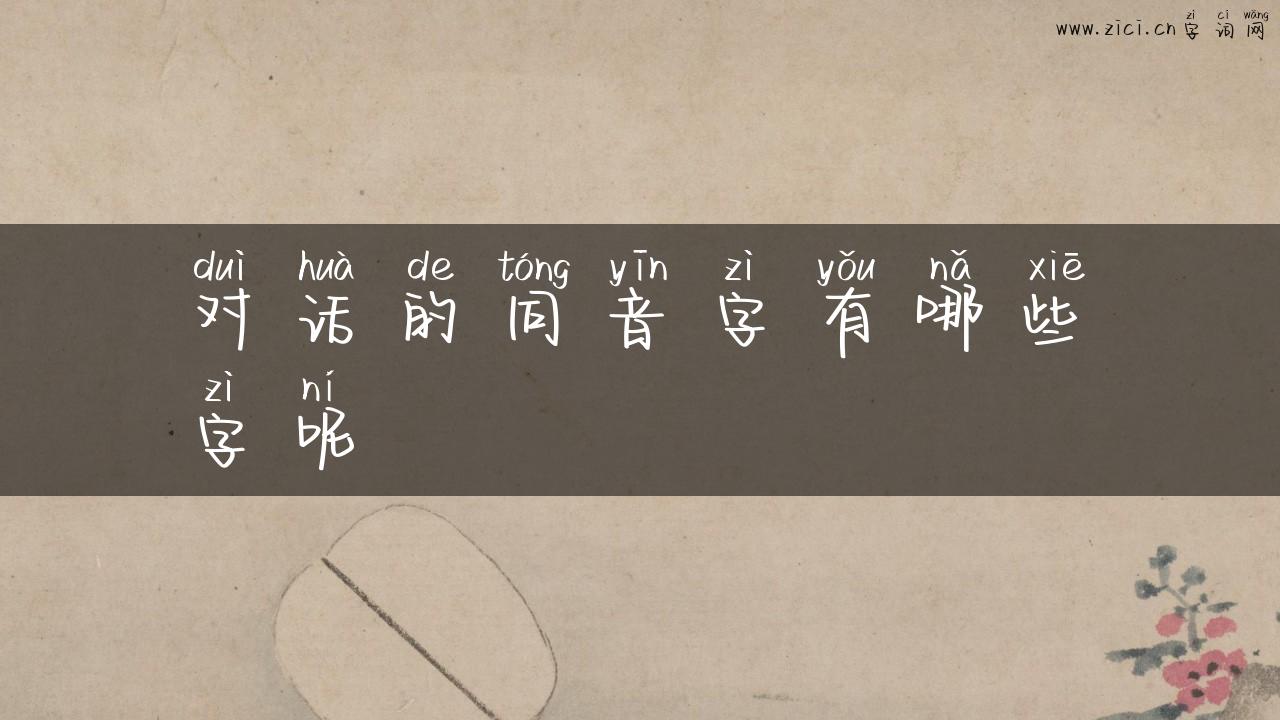 zì cí wǎng
www.zici.cn字词网
duì huà de tóng yīn zì yǒu nǎ xiē
对话的同音字有哪些
zì ní
字呢